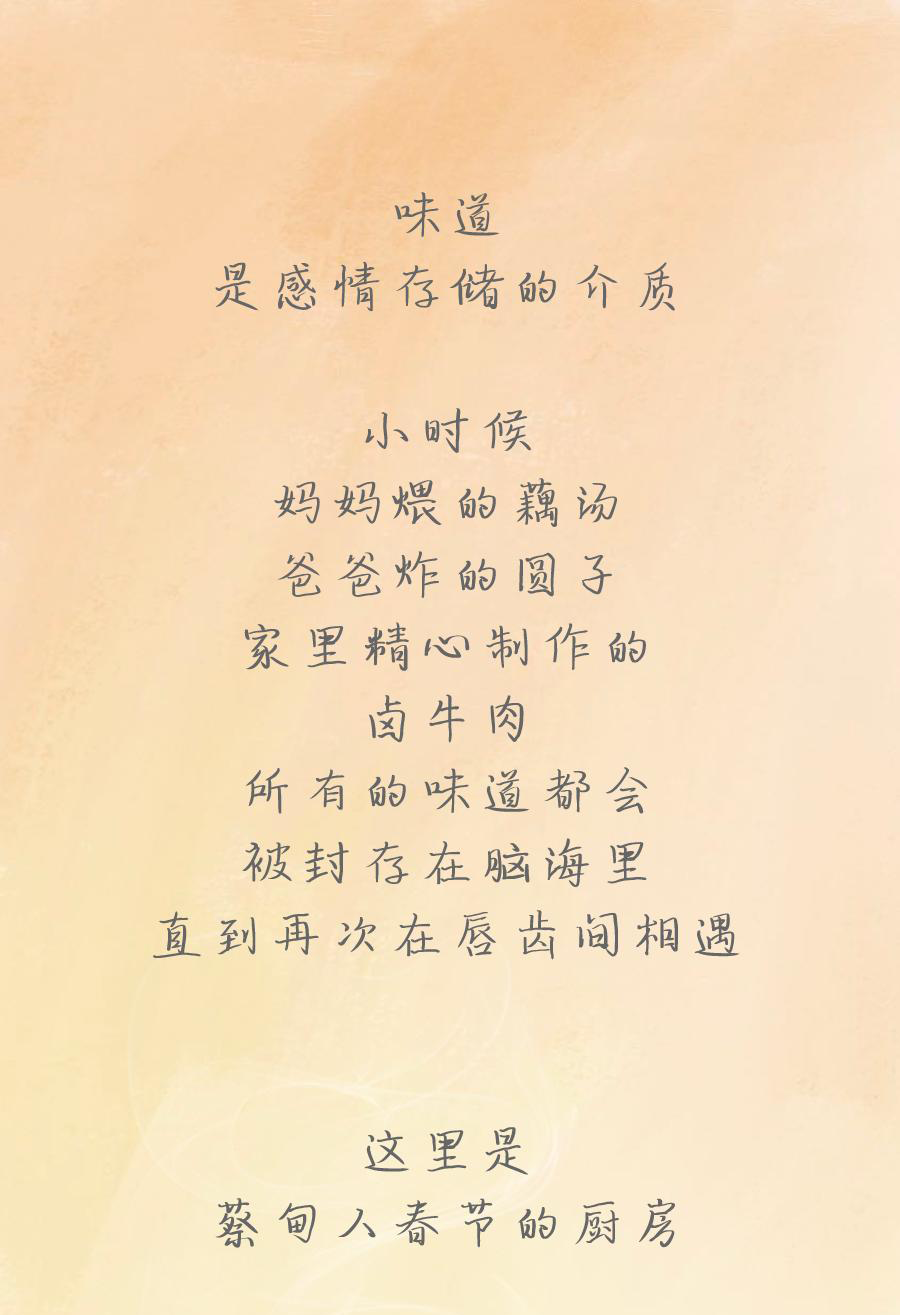 味道
是感情存储的介质
小时候
妈妈煨的藕汤
爸爸炸的圆子
家里精心制作的
卤牛肉
所有的味道都会
被封存在脑海里
直到再次在唇齿间相遇
这里是
蔡甸人春节的厨房